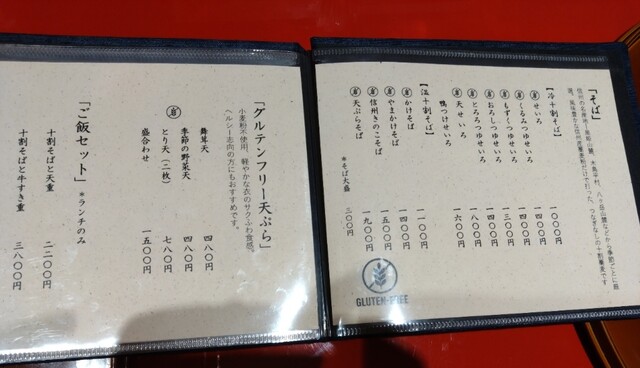 「そば」
【冷十割そば】
せいろ 一〇〇〇円
くるみつゆせいろ 一四〇〇円
もずくつゆせいろ 一三〇〇円
おろしつゆせいろ 一四〇〇円
とろろつゆせいろ 一八〇〇円
天せいろ 一六〇〇円
鴨つけせいろ
【温十割そば】
かけそば 一一〇〇円
やまかけそば 一四〇〇円
信州きのこそば 一五〇〇円
天ぷらそば 一九〇〇円
*そば大盛 三〇〇円
GLUTEN-FREE
「グルテンフリー天ぷら」
小麦粉不使用、軽やかな衣のサクふわ食感。
ヘルシー志向の方にもおすすめです。
舞茸天 四八〇円
季節の野菜天 四八〇円
とり天(二枚) 七八〇円
盛合わせ 一五〇〇円
「ご飯セット」*ランチのみ
十割そばと天重 二二〇〇円
十割そばと牛すき重 三八〇〇円